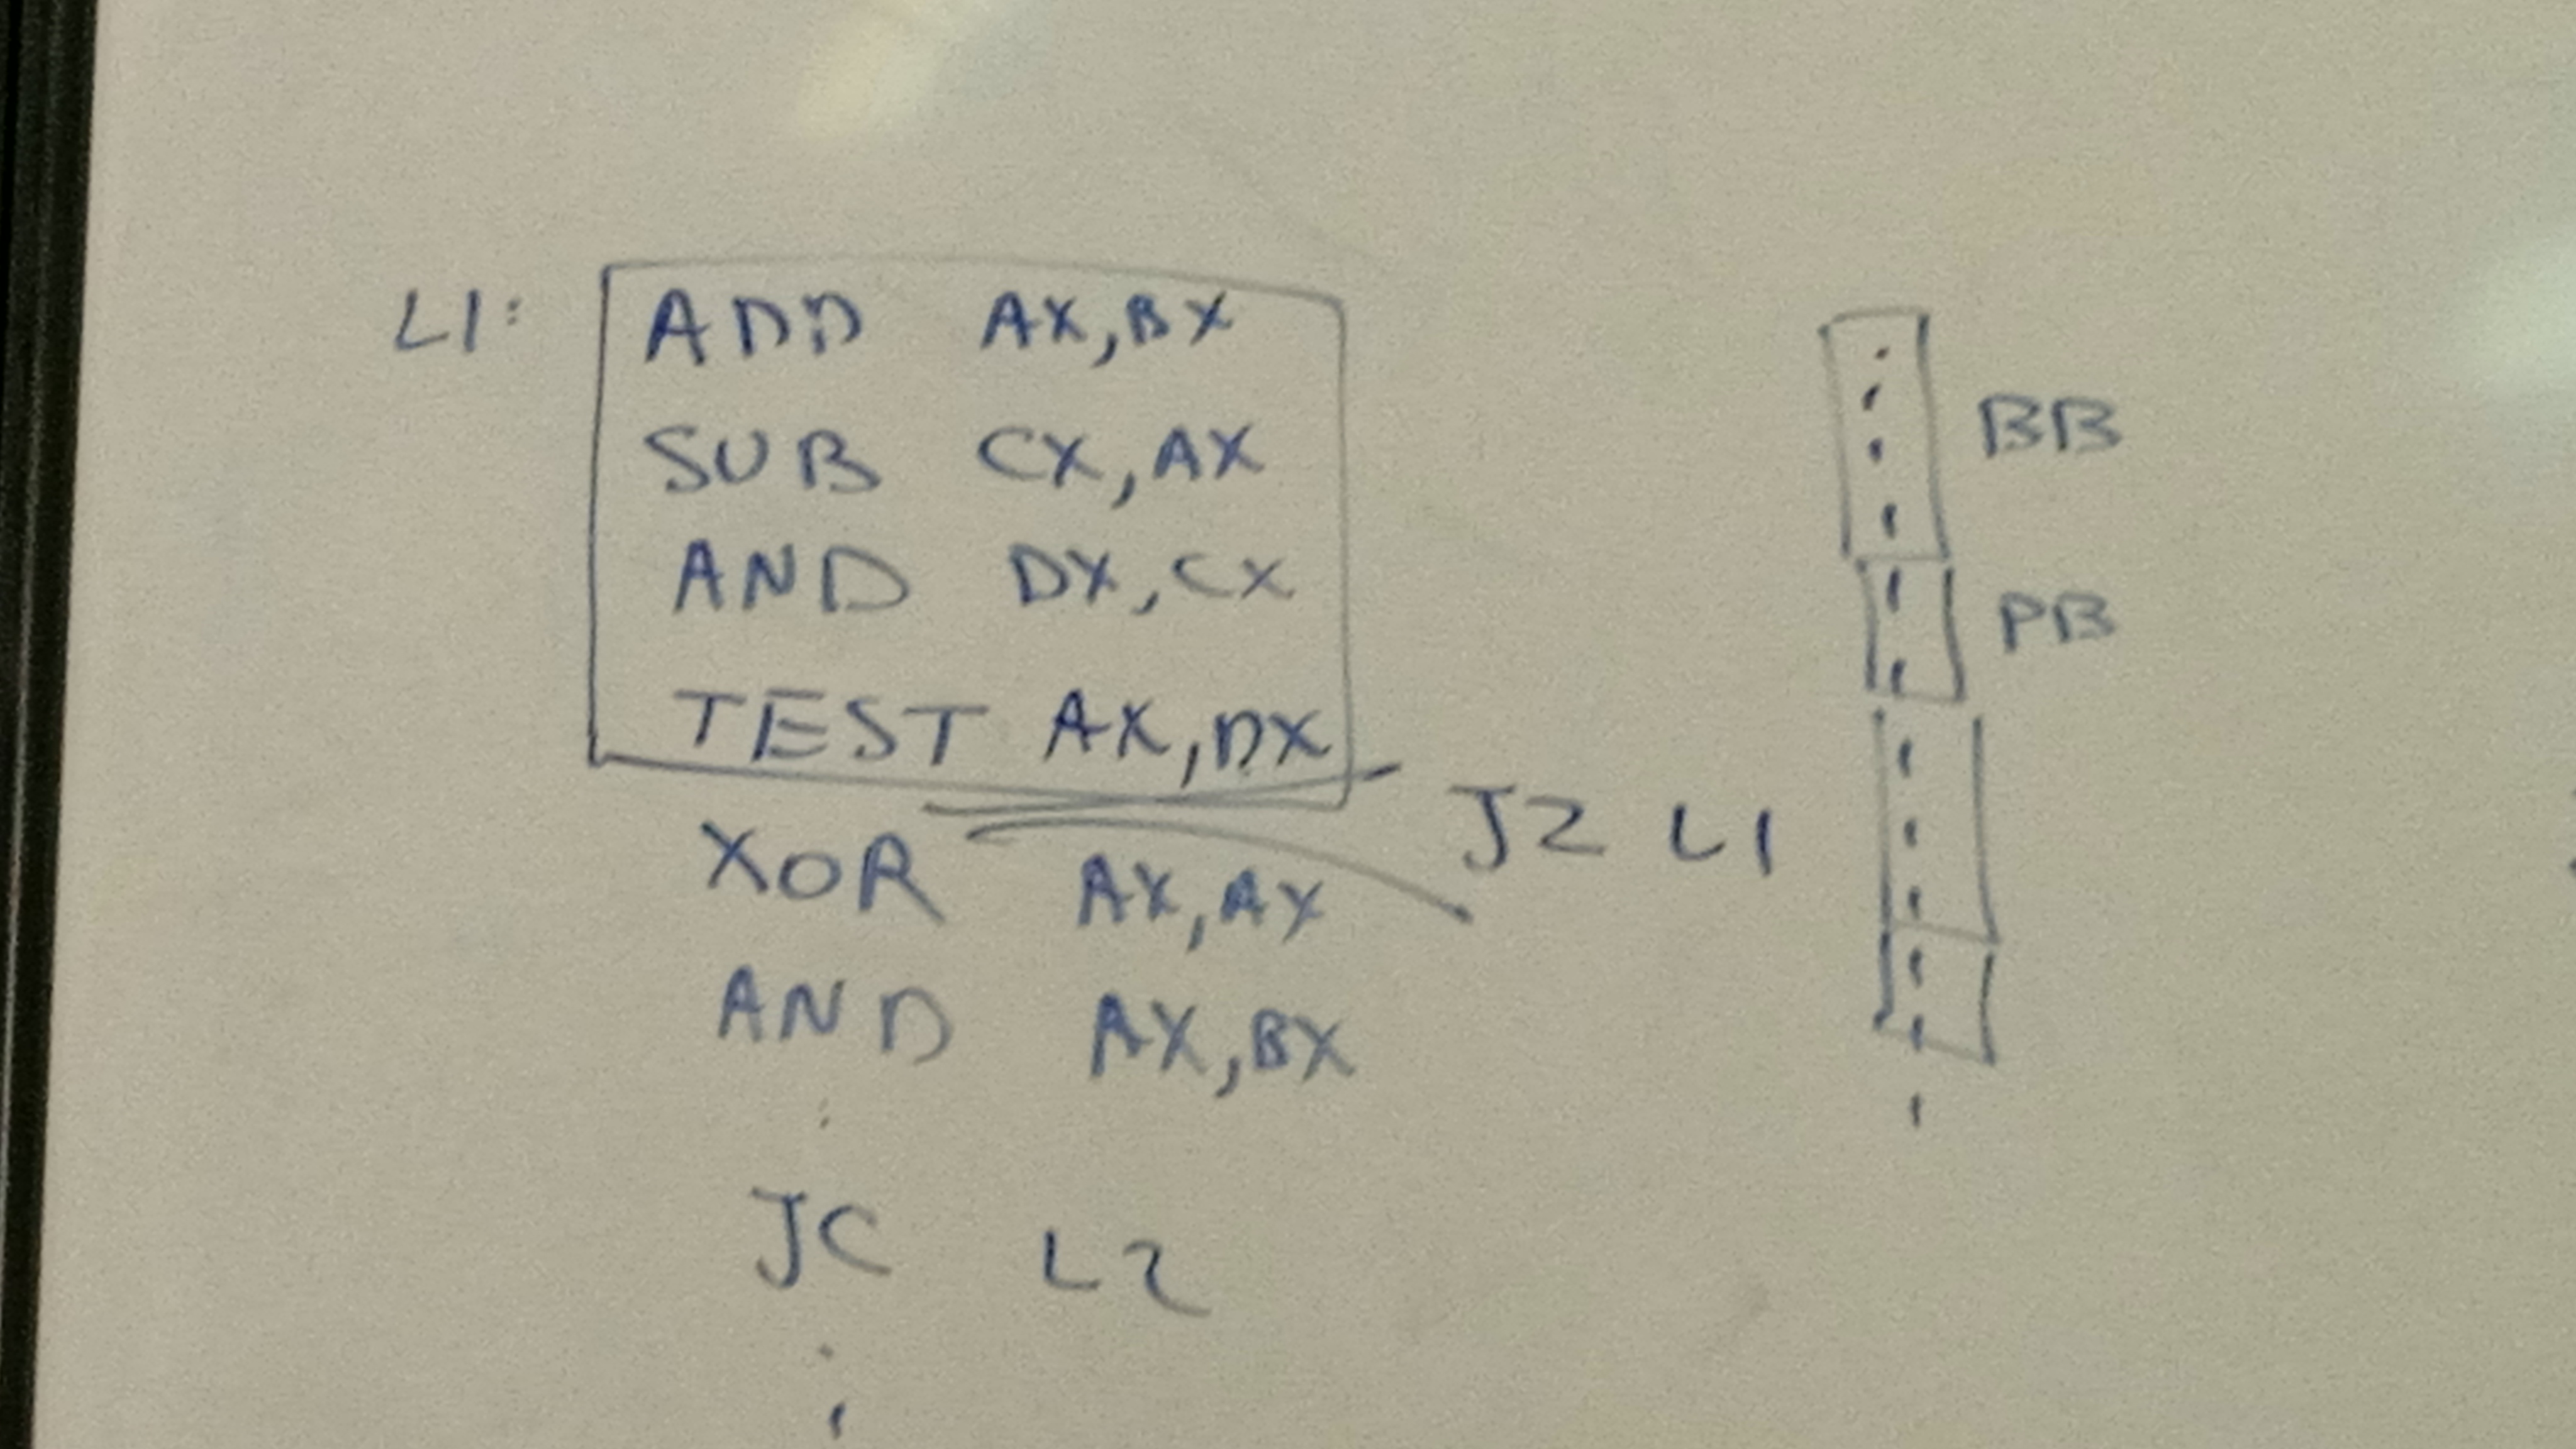 L1: ADD AX,BX
SUB CX,AX
AND DX,CX
TEST AX,DX
JZ L1
XOR AX,AX
AND AX,BX
JC L2
BB
PB